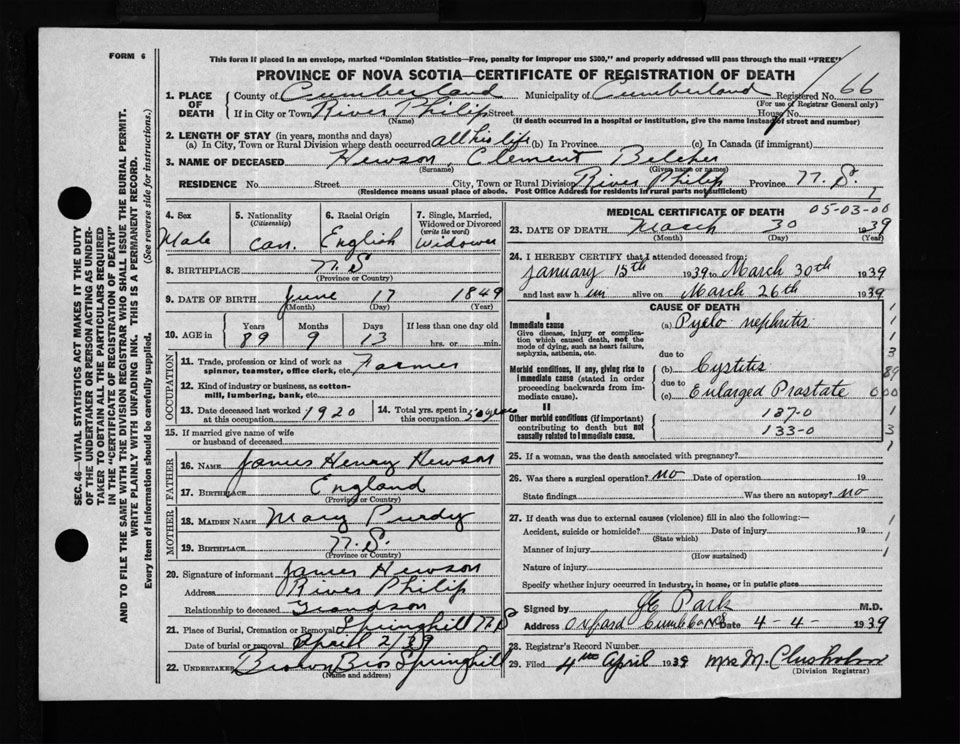 FORM 6
This form if placed in an envelope, marked "Dominion Statistics—Free, penalty for improper use $300," and properly addressed will pass through the mail "FREE"
PROVINCE OF NOVA SCOTIA—CERTIFICATE OF REGISTRATION OF DEATH
1. PLACE OF DEATH
County of Cumberland Municipality of Cumberland Registered No. 66
(For use of Registrar General only)
If in City or Town River Philip Street House No.
(Name) (If death occurred in a hospital or institution, give the name instead of street and number)
2. LENGTH OF STAY (in years, months and days)
(a) In City, Town or Rural Division where death occurred all his life (b) In Province (c) In Canada (if immigrant)
3. NAME OF DECEASED Hewson, Clement Belcher
(Surname) (Given name or names)
RESIDENCE No. Street City, Town or Rural Division River Philip Province N.S.
(Residence means usual place of abode. Post Office Address for residents in rural parts not sufficient)
4. Sex
Male
5. Nationality
(Citizenship)
Can.
6. Racial Origin
English
7. Single, Married, Widowed or Divorced
(write the word)
Widower
8. BIRTHPLACE N.S
(Province or Country)
9. DATE OF BIRTH June 17 1849
(Month) (Day) (Year)
10. AGE in
Years Months Days If less than one day old
89 9 13 hrs. or min.
OCCUPATION
11. Trade, profession or kind of work as
spinner, teamster, office clerk, etc. Farmer
12. Kind of industry or business, as cotton-
mill, lumbering, bank, etc.
13. Date deceased last worked at this occupation 1920
14. Total yrs. spent in this occupation 50 years
15. If married give name of wife
or husband of deceased.
FATHER
16. NAME James Henry Hewson
17. BIRTHPLACE England
(Province or Country)
MOTHER
18. MAIDEN NAME Mary Purdy
19. BIRTHPLACE N.S.
(Province or Country)
20. Signature of informant James Hewson
Address River Philip
Relationship to deceased Grandson
21. Place of Burial, Cremation or Removal Springhill N.S
Date of burial or removal April 2/39
22. UNDERTAKER Brown Bros Springhill
(Name and address)
MEDICAL CERTIFICATE OF DEATH 05-03-00
23. DATE OF DEATH March 30 1939
(Month) (Day) (Year)
24. I HEREBY CERTIFY that I attended deceased from:
January 15th 1939 to March 30th 1939
and last saw him alive on March 26th 1939
CAUSE OF DEATH
I
Immediate cause
Give disease, injury or complica-
tion which caused death, not the
mode of dying, such as heart failure,
asphyxia, asthenia, etc.
(a) Pyelo nephritis
due to
Morbid conditions, if any, giving rise to
immediate cause (stated in order
proceeding backwards from im-
mediate cause).
(b) Cystitis
due to
(c) Enlarged Prostate
II
Other morbid conditions (if important)
contributing to death but not
causally related to immediate cause.
137-0
133-0
1
1
1
3
89
000
1
3
1
25. If a woman, was the death associated with pregnancy?
26. Was there a surgical operation? no Date of operation 19
State findings Was there an autopsy? no
27. If death was due to external causes (violence) fill in also the following:—
Accident, suicide or homicide? Date of injury 19
(State which)
Manner of injury
(How sustained)
Nature of injury
Specify whether injury occurred in industry, in home, or in public place
1
1
1
Signed by JE Park M.D.
Address Oxford Cumb Co NS Date 4-4- 1939
28. Registrar's Record Number
29. Filed 4th April 1939 Mrs M. Chisholm
(Division Registrar)
SEC. 46—VITAL STATISTICS ACT MAKES IT THE DUTY
OF THE UNDERTAKER OR PERSON ACTING AS UNDER-
TAKER TO OBTAIN ALL THE PARTICULARS REQUIRED
IN THE "CERTIFICATE OF REGISTRATION OF DEATH"
AND TO FILE THE SAME WITH THE DIVISION REGISTRAR WHO SHALL ISSUE THE BURIAL PERMIT.
WRITE PLAINLY WITH UNFADING INK. THIS IS A PERMANENT RECORD.
Every item of information should be carefully supplied. (See reverse side for instructions.)